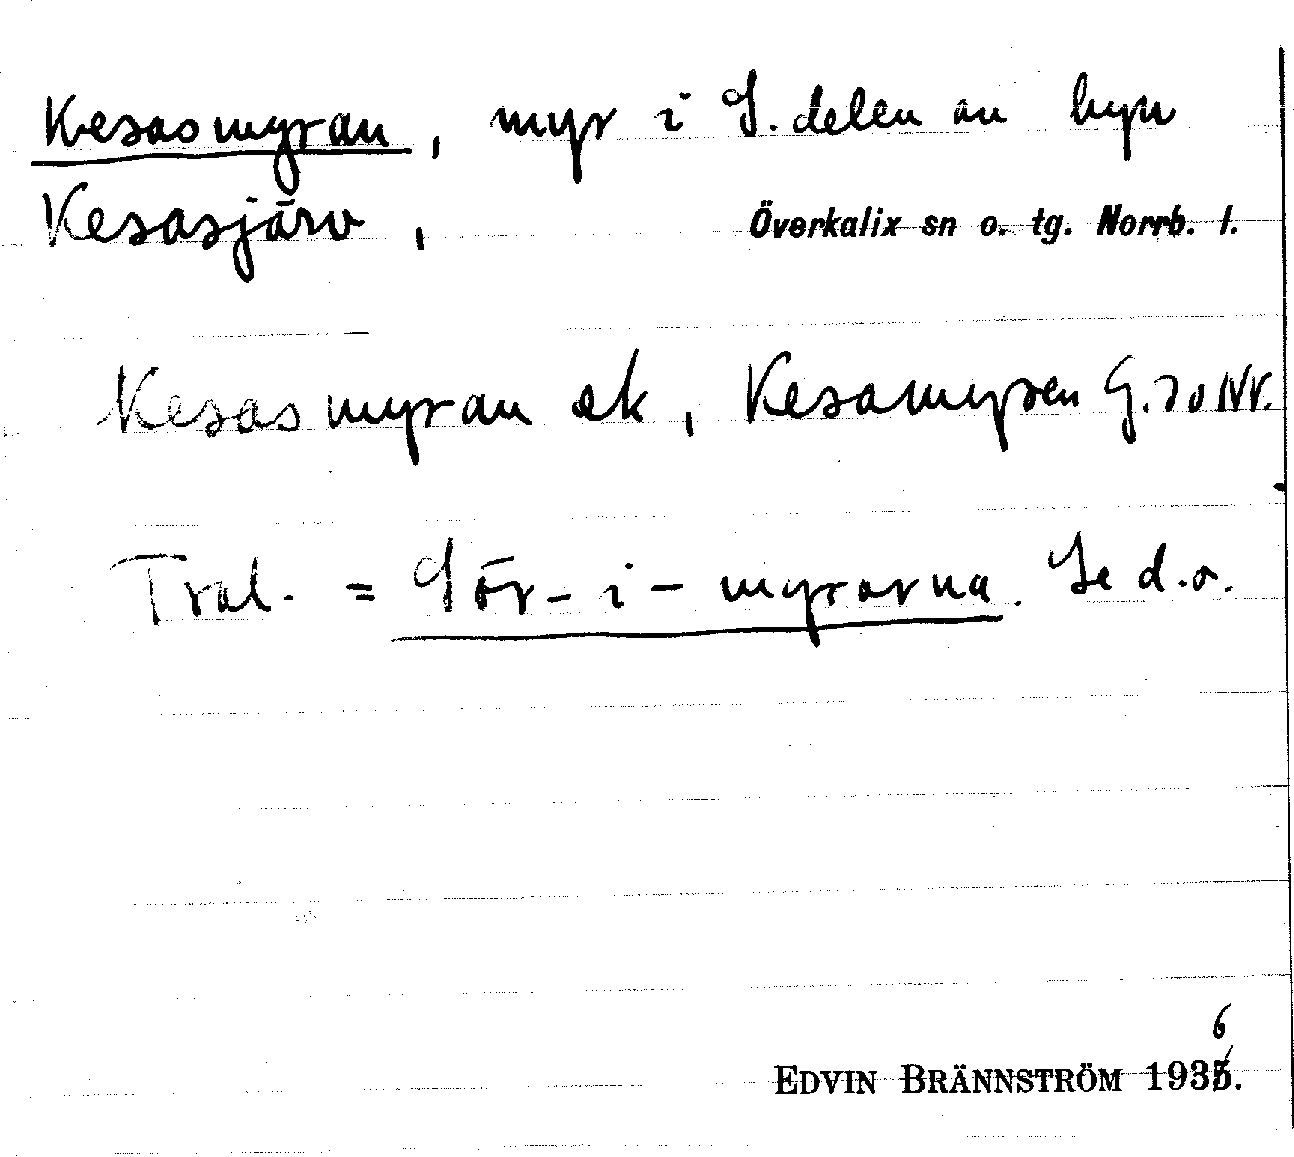 Kesasmyran, myr i S. delen av byn
Kesasjärv, Överkalix sn o. tg. Norrb. l.
Kesasmyran ek, Kesamyren G. 70 NV.
Trol. = Sör-i-myrarna. Se d.o.
6
EDVIN BRÄNNSTRÖM 1935.